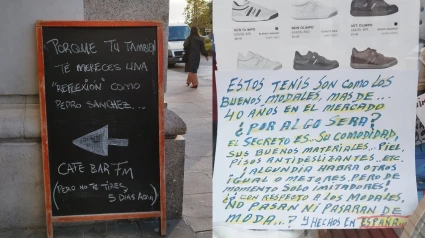 PORQUE TU TAMBIEN
TE MERECES UNA
"REFLEXIÓN" COMO
PEDRO SÁNCHEZ...
CAFE BAR FM
(PERO NO TE TIRES
5 DIAS AQUI)
ESTOS TENIS SON COMO LOS
BUENOS MODALES, MAS DE...
40 AÑOS EN EL MERCADO
¿POR ALGO SERA?
EL SECRETO ES.. SU COMODIDAD,
SUS BUENOS MATERIALES.. PIEL,
PISOS ANTIDESLIZANTES.. ETC,
¡ALGUN DIA HABRA OTROS
IGUAL O MEJORES, PERO DE
MOMENTO SOLO IMITADORES!
¿Y CON RESPETO A LOS MODALES,
NO PASAN NI PASARAN DE
MODA..? Y HECHOS EN ESPAÑA..